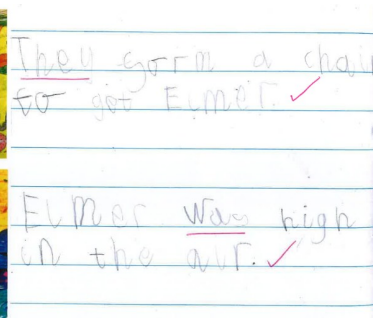 They form a chain
to get Elmer.
Elmer was high
in the air.